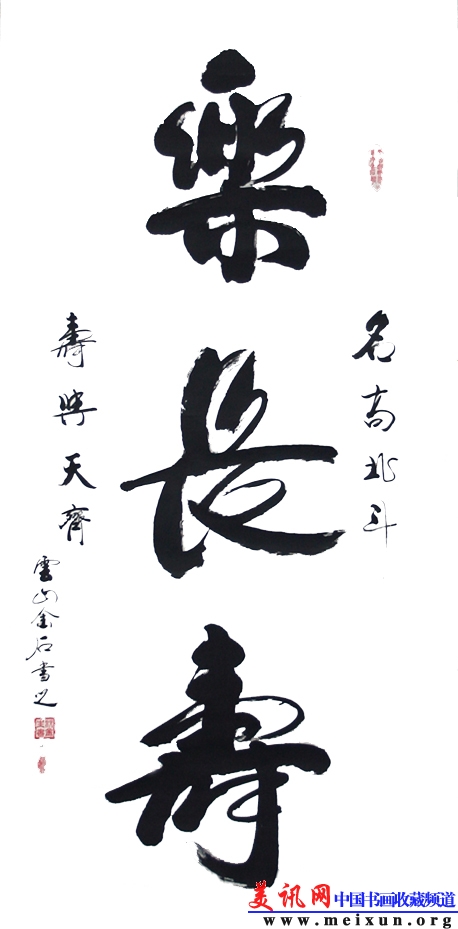 樂長壽
名高北斗
壽與天齊
雲山金石書之
美讯网
中国书画收藏频道
www.meixun.org